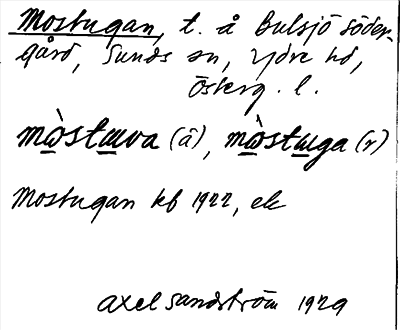 Mostugan, t. å Bulsjö Söder-
gård, Sunds sn, Ydre hd,
Österg. l.
mòstuva (â), mòstuga (r)
Mostugan kb 1922, ek
Axel Sandström 1929